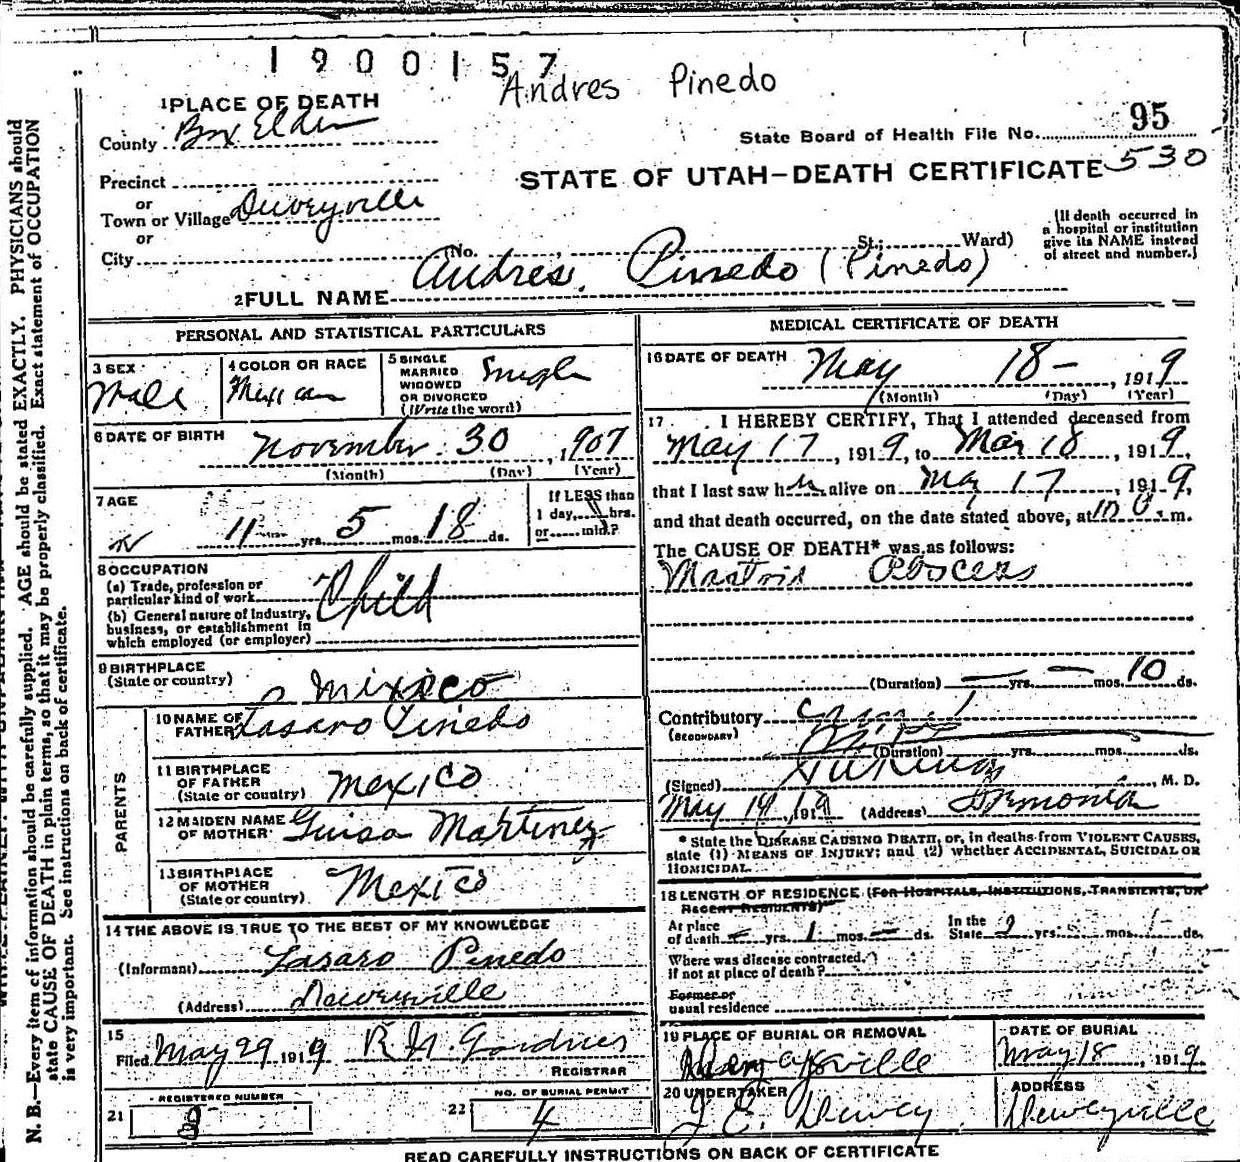 1900157
Andres Pinedo
1 PLACE OF DEATH
County Box Elder
State Board of Health File No. 95
Precinct
STATE OF UTAH—DEATH CERTIFICATE 530
or
Town or Village Deweyville
or
City (No. St.; Ward)
(If death occurred in
a hospital or institution
give its NAME instead
of street and number.)
2 FULL NAME Andres Pinedo (Pinedo)
PERSONAL AND STATISTICAL PARTICULARS
3 SEX Male
4 COLOR OR RACE Mexican
5 SINGLE
MARRIED
WIDOWED
OR DIVORCED
(Write the word) Single
6 DATE OF BIRTH November 30, 1907
(Month) (Day) (Year)
7 AGE
11 yrs. 5 mos. 18 ds.
If LESS than
1 day, hrs.
or min.?
8 OCCUPATION
(a) Trade, profession or
particular kind of work Child
(b) General nature of Industry,
business, or establishment in
which employed (or employer)
9 BIRTHPLACE
(State or country) Mexico
PARENTS
10 NAME OF
FATHER Lasaro Pinedo
11 BIRTHPLACE
OF FATHER
(State or country) Mexico
12 MAIDEN NAME
OF MOTHER Martinez
13 BIRTHPLACE
OF MOTHER
(State or country) Mexico
14 THE ABOVE IS TRUE TO THE BEST OF MY KNOWLEDGE
(Informant) Lasaro Pinedo
(Address) Deweyville
15
Filed May 29 1919 R N
REGISTRAR
21 REGISTERED NUMBER
22 NO. OF BURIAL PERMIT
4
MEDICAL CERTIFICATE OF DEATH
16 DATE OF DEATH May 18 – , 1919
(Month) (Day) (Year)
17 I HEREBY CERTIFY, That I attended deceased from
May 17, 1919, to May 18, 1919,
that I last saw him alive on May 17, 1919,
and that death occurred, on the date stated above, at 10 m.
The CAUSE OF DEATH* was as follows:
Mastoid Abscess
(Duration) — yrs. — mos. 10 ds.
Contributory
(SECONDARY)
(Duration) yrs. mos. ds.
(Signed) M. D.
May 19, 1919 (Address)
* State the DISEASE CAUSING DEATH, or, in deaths from VIOLENT CAUSES,
state (1) MEANS OF INJURY; and (2) whether ACCIDENTAL, SUICIDAL OR
HOMICIDAL.
18 LENGTH OF RESIDENCE (FOR HOSPITALS, INSTITUTIONS, TRANSIENTS, OR
RECENT RESIDENTS)
At place
of death — yrs. 1 mos. — ds.
In the
State yrs. mos. ds.
Where was disease contracted,
if not at place of death?
Former or
usual residence
19 PLACE OF BURIAL OR REMOVAL
Deweyville
DATE OF BURIAL
May 18, 1919.
20 UNDERTAKER
J E Dewey
ADDRESS
Deweyville
READ CAREFULLY INSTRUCTIONS ON BACK OF CERTIFICATE
N. B.—Every item of information should be carefully supplied. AGE should be stated EXACTLY. PHYSICIANS should
state CAUSE OF DEATH in plain terms, so that it may be properly classified. Exact statement of OCCUPATION
is very important. See instructions on back of certificate.